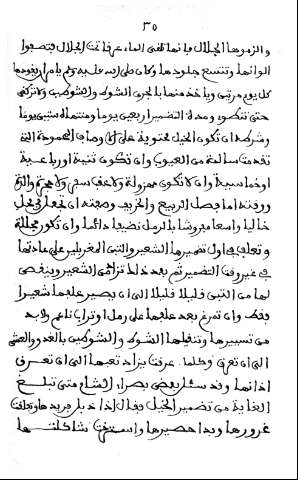 ٣٥
والزموها الجلال فانها تلقى الماء عرفا تحت الجلال فتصفوا
الوانها وتتسع جلودها وكان صلى الله عليه وسلم يامر ان يقودها
كل يوم مرتين وياخذ منها بالجرى الشوط والشوطين ولا تركض
حتى تنطوى ومدة التضمير اربعين يوما ومنتهاه ستين يوما
وشرطه ان تكون الخيل محتوية على الاوصاف المحمودة التى
تقدمت سالمة من العيوب وان تكون ثنية او رباعية
او خماسية وان لا تكون مهزولة ولا عجف
ووقته اما فصل الربيع والخريف وصفته ان تجعل فى محل
خاليا واسعا مفروشا بالرمل نضيفا دائما وان تكون مجللة
وتعلف فى اول تضميرها الشعير والتبن المغربلين على عادتها
فى غير وقت التضمير ثم بعد ذلك تزاد فى الشعير وينقص
لها من التبن قليلا قليلا الى ان يصير علفها شعيرا
فقط وان تمرغ بعد علفها على رمل او تراب ناعم ولا بد
من تسييرها وتنفيلها الشوط والشوطين بالغدو والعشى
الى ان تعرق وكلما عرقت يزاد تعبها الى ان تعرق
اذانها وقد سئل بعض بصراء الشام متى تبلغ
الغاية من تضمير الخيل فقال اذا ذبل فريدها وتفلقت
غرورها وبدا حصيرها واسترخت شاكلتها